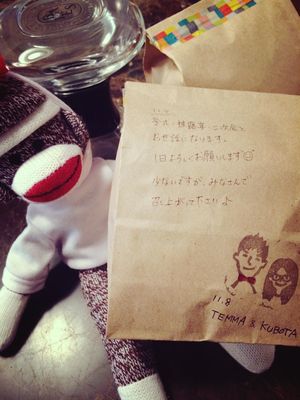 挙式・披露宴・二次会と
お世話になります。
1日よろしくお願いします☺
少ないですが、みなさんで
召し上がって下さい♪
11.8
TEMMA & KUBOTA